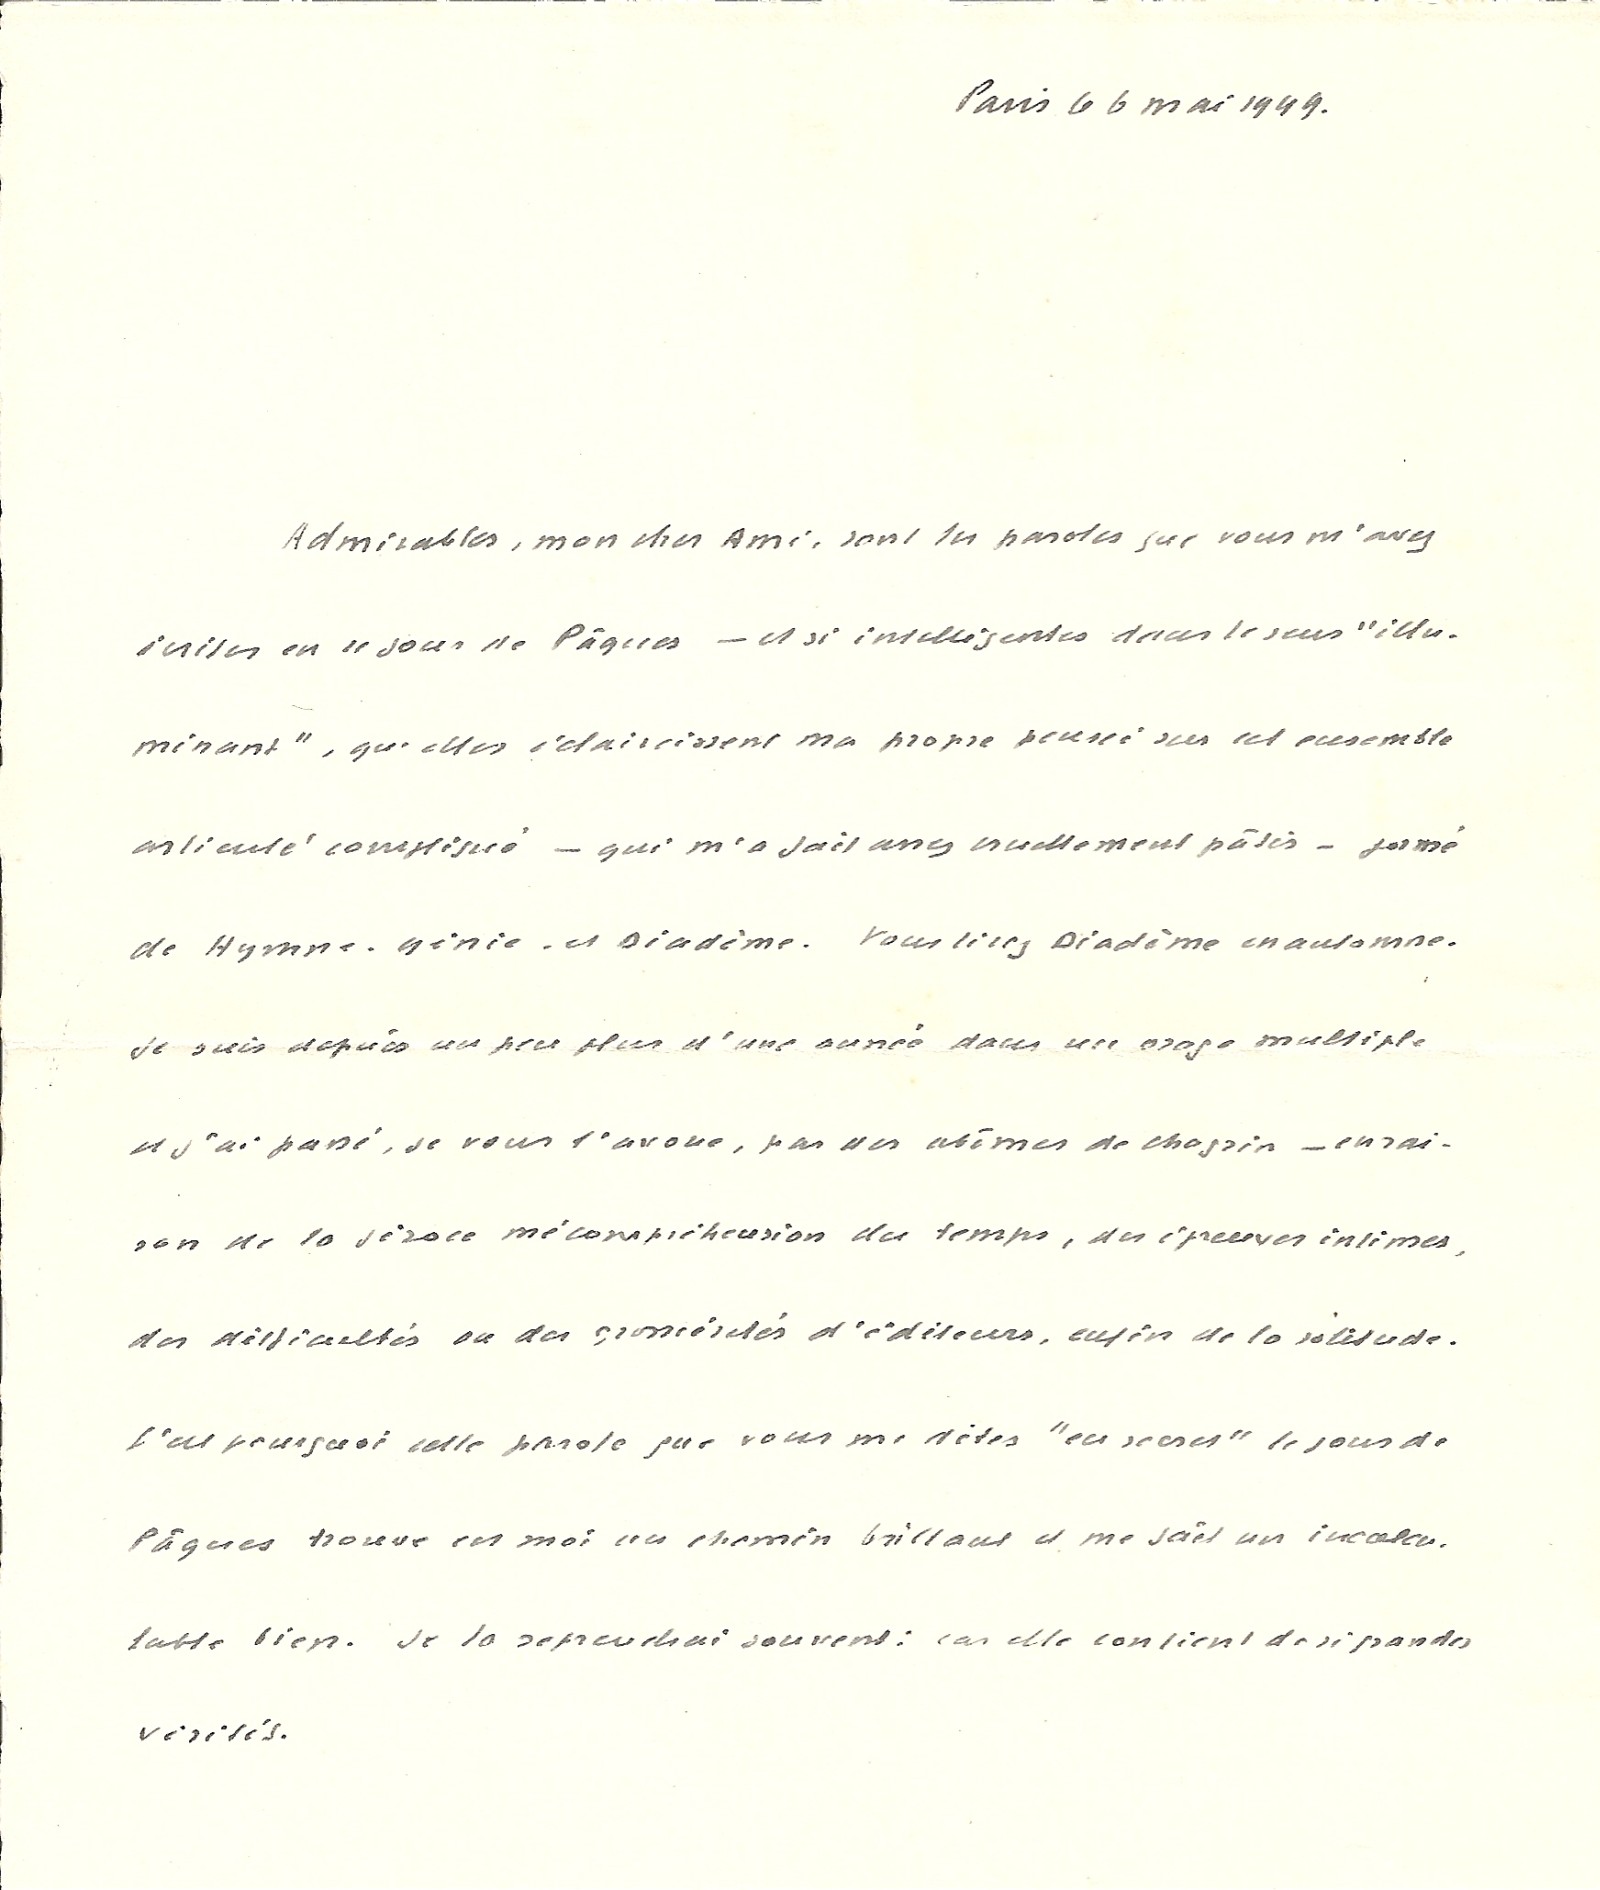 Paris le 6 mai 1949.
Admirables, mon cher Ami, sont les paroles que vous m'avez
écrites en ce jour de Pâques — et si intelligentes dans le sens "illu-
minant", qu'elles éclaircissent ma propre pensée sur cet ensemble
articulé compliqué — qui m'a fait assez cruellement pâtir — formé
de Hymne, Génie, et Diadème. Vous lirez Diadème en automne.
Je suis depuis un peu plus d'une année dans un orage multiple
et j'ai passé, je vous l'avoue, par des abîmes de chagrin — en rai-
son de la féroce mécompréhension du temps, des épreuves intimes,
des difficultés ou des grossièretés d'éditeurs, enfin de la solitude.
C'est pourquoi cette parole que vous me dites "en secret" le jour de
Pâques trouve en moi un chemin brillant et me fait un incalcu-
lable bien. Je la reprendrai souvent: car elle contient de si grandes
vérités.